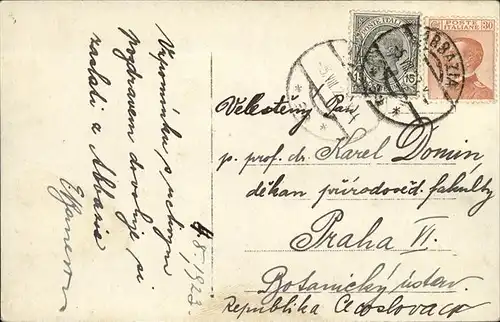 Vzpomínku s uctivým
Pozdravem dovoluje si
zaslati z Abbazie
4/8 1923.
POSTE ITALIANE
15
POSTE
ITALIANE
ABBAZIA
VIII
Velectěný Pan
p. prof. dr. Karel Domin,
děkan přírodověd. fakulty
Praha VI.
Botanický ústav.
Republika Cecoslovacca